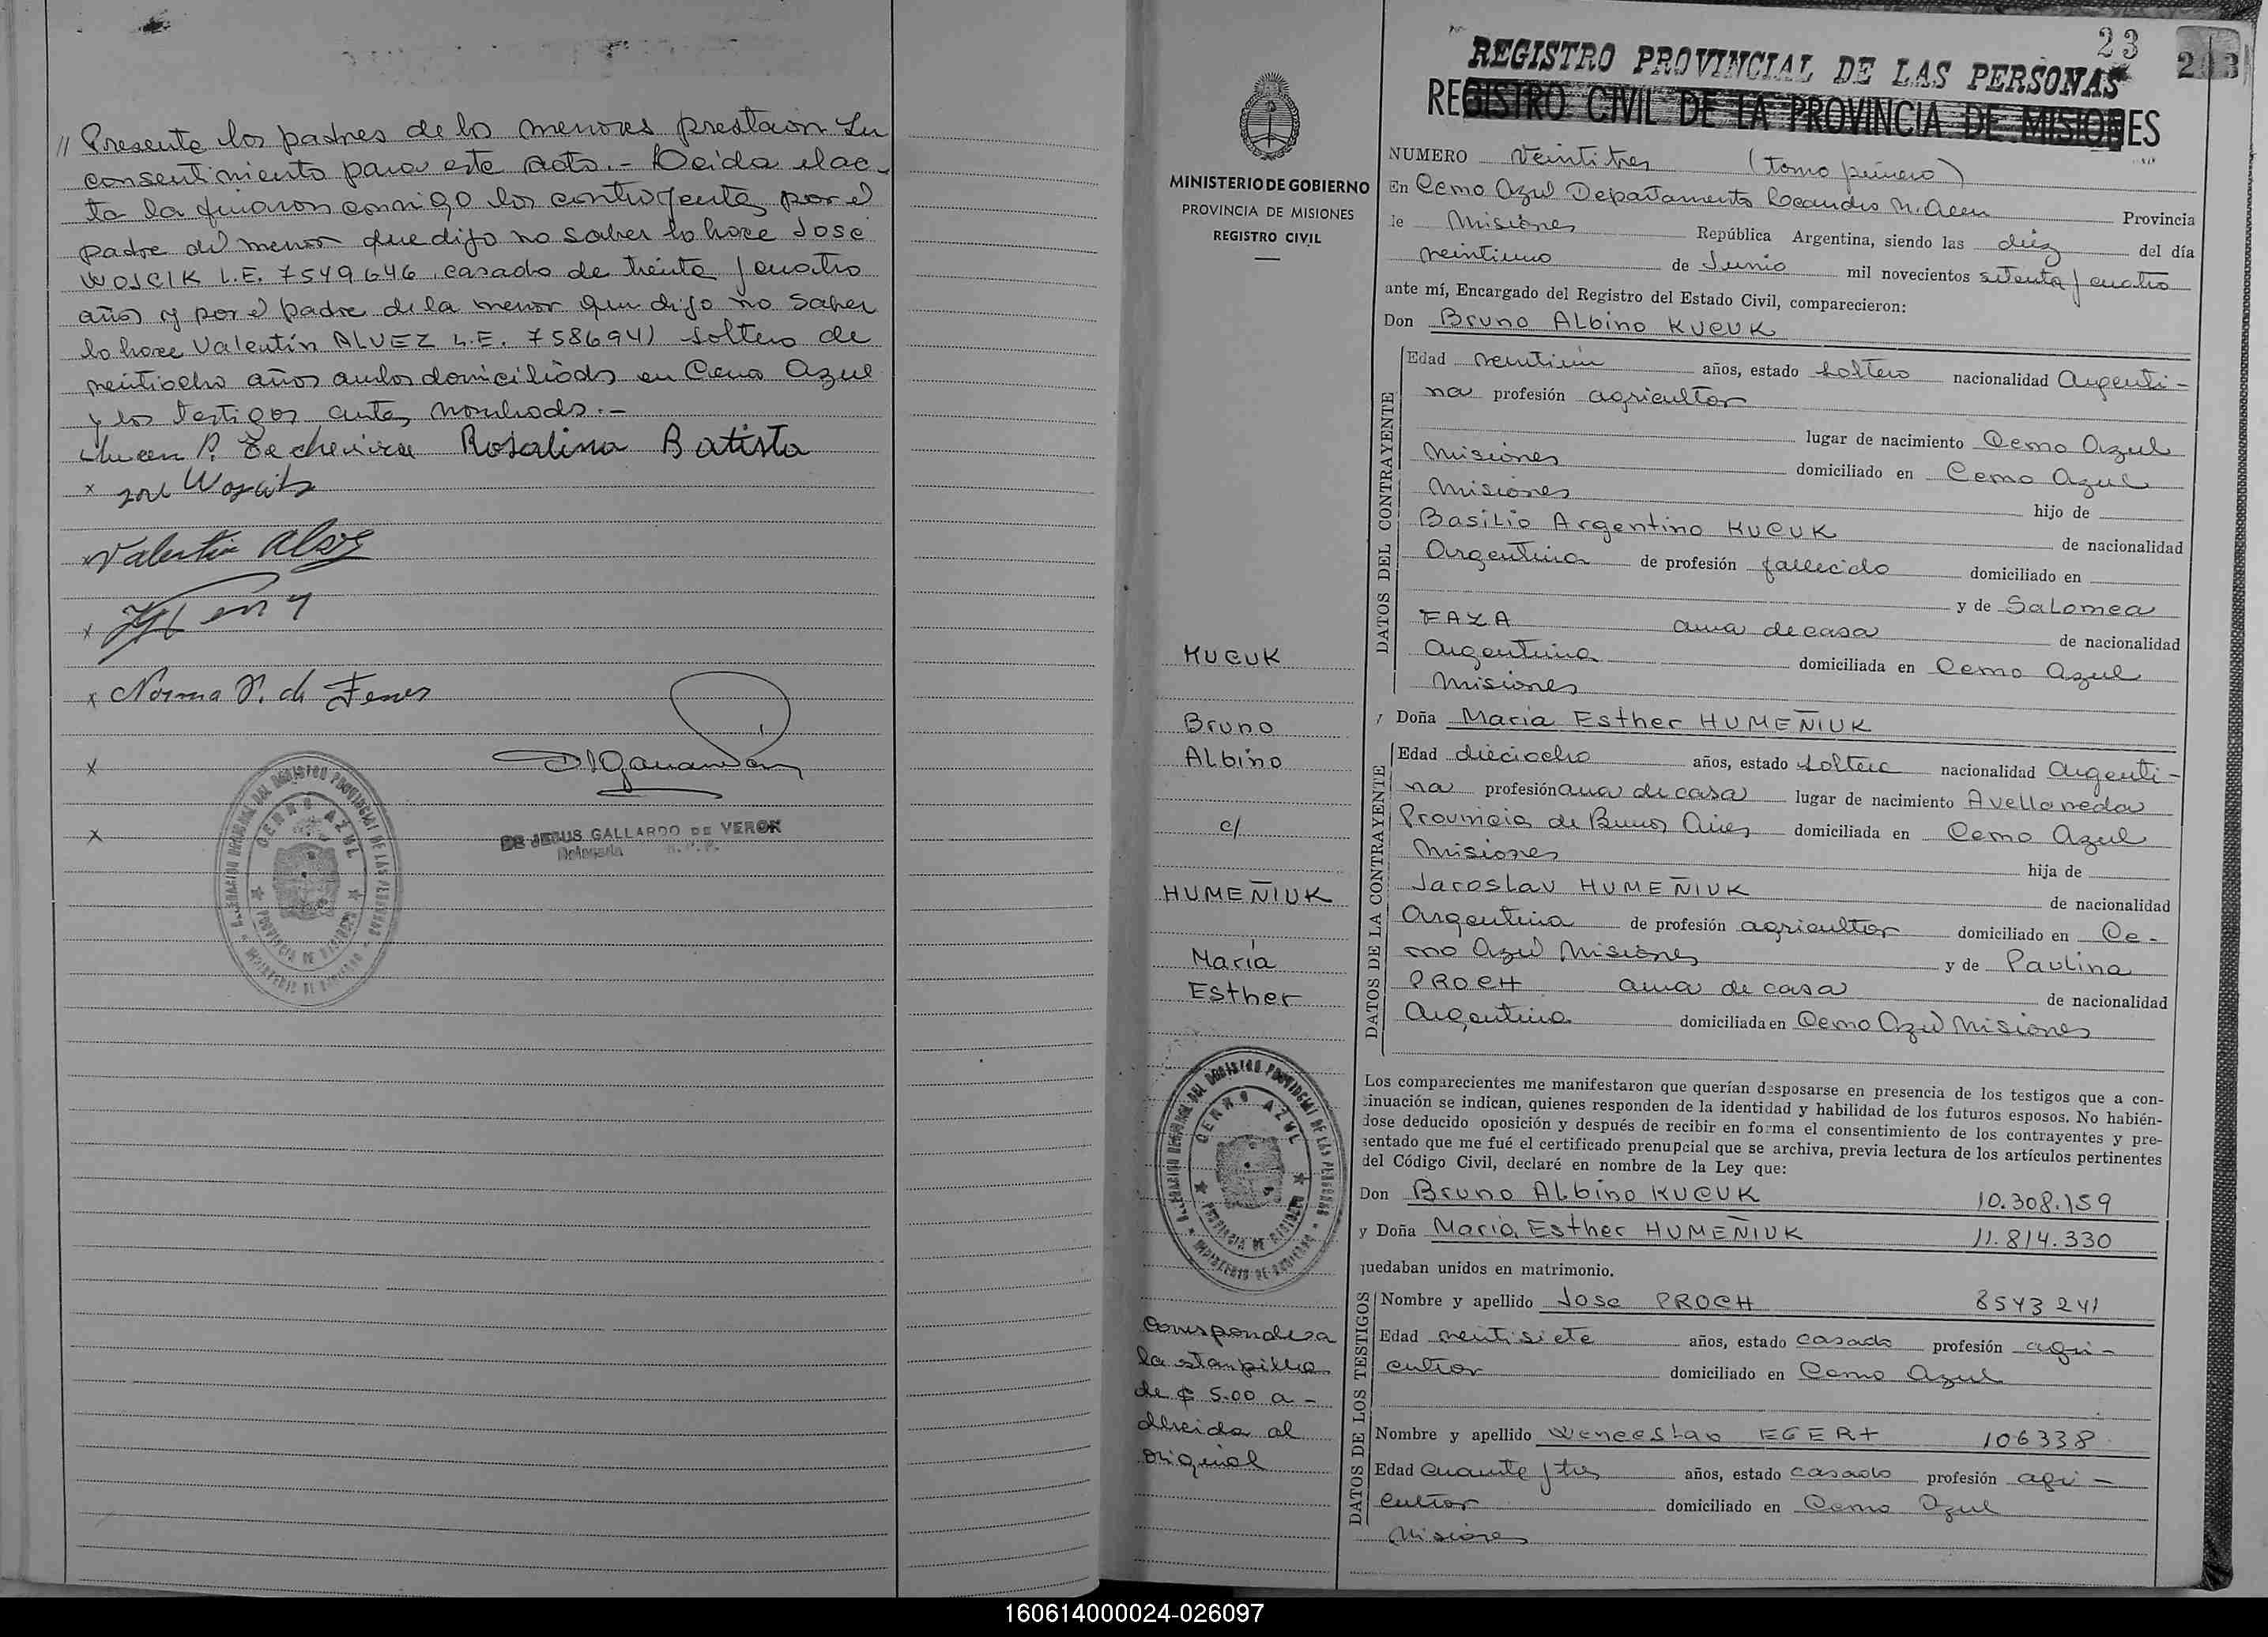 // Presente los padres de los menores prestaron su
consentimiento para este acto.- Leida el ac-
ta la firmaron conmigo los contrayentes, por el
padre del menor que dijo no saber lo hace José
WOJCIK L.E. 7549646, casado de treinta y cuatro
años y por el padre de la menor que dijo no saber
lo hace Valentín ALVEZ L.E. 7586941 soltero de
veintiocho años ambos domiciliados en Cerro Azul
y los testigos antes nombrados.-
Rosalina Batista
x
x Valentin
x
x Norma P. de
x
x
DE JESUS GALLARDO DE VERON
Delegada R.P.P.
CERRO AZUL
PROVINCIA DE MISIONES
23
REGISTRO PROVINCIAL DE LAS PERSONAS
REGISTRO CIVIL DE LA PROVINCIA DE MISIONES
MINISTERIO DE GOBIERNO
PROVINCIA DE MISIONES
REGISTRO CIVIL
NUMERO veintitres (tomo primero)
En Cerro Azul Departamento Leandro N. Alem Provincia
de Misiones República Argentina, siendo las diez del día
veintiuno de Junio mil novecientos setenta y cuatro
ante mí, Encargado del Registro del Estado Civil, comparecieron:
Don Bruno Albino KUCUK
DATOS DEL CONTRAYENTE
Edad veintiun años, estado soltero nacionalidad Argenti-
na profesión agricultor
lugar de nacimiento Cerro Azul
Misiones domiciliado en Cerro Azul
Misiones hijo de
Basilio Argentino KUCUK de nacionalidad
Argentina de profesión fallecido domiciliado en
y de Salomea
FAZA ama de casa de nacionalidad
Argentina domiciliada en Cerro Azul
Misiones
y Doña Maria Esther HUMEÑIUK
DATOS DE LA CONTRAYENTE
Edad dieciocho años, estado soltera nacionalidad Argenti-
na profesión ama de casa lugar de nacimiento Avellaneda
Provincia de Buenos Aires domiciliada en Cerro Azul
Misiones hija de
Jaroslav HUMEÑIUK de nacionalidad
Argentina de profesión agricultor domiciliado en Ce-
rro Azul Misiones y de Paulina
PROCH ama de casa de nacionalidad
Argentina domiciliada en Cerro Azul Misiones
Los comparecientes me manifestaron que querían desposarse en presencia de los testigos que a con-
tinuación se indican, quienes responden de la identidad y habilidad de los futuros esposos. No habién-
dose deducido oposición y después de recibir en forma el consentimiento de los contrayentes y pre-
sentado que me fué el certificado prenupcial que se archiva, previa lectura de los artículos pertinentes
del Código Civil, declaré en nombre de la Ley que:
Don Bruno Albino KUCUK 10.308.159
y Doña Maria Esther HUMEÑIUK 11.814.330
quedaban unidos en matrimonio.
DATOS DE LOS TESTIGOS
Nombre y apellido Jose PROCH 8543241
Edad veintisiete años, estado casado profesión agri-
cultor domiciliado en Cerro Azul
Nombre y apellido Wenceslao EGERT 106338
Edad cuarenta y tres años, estado casado profesión agri-
cultor domiciliado en Cerro Azul
Misiones
KUCUK
Bruno
Albino
c/
HUMEÑIUK
María
Esther
CERRO AZUL
PROVINCIA DE MISIONES
Corresponde a
la estampilla
de $ 5.00 a-
dherida al
original
160614000024-026097